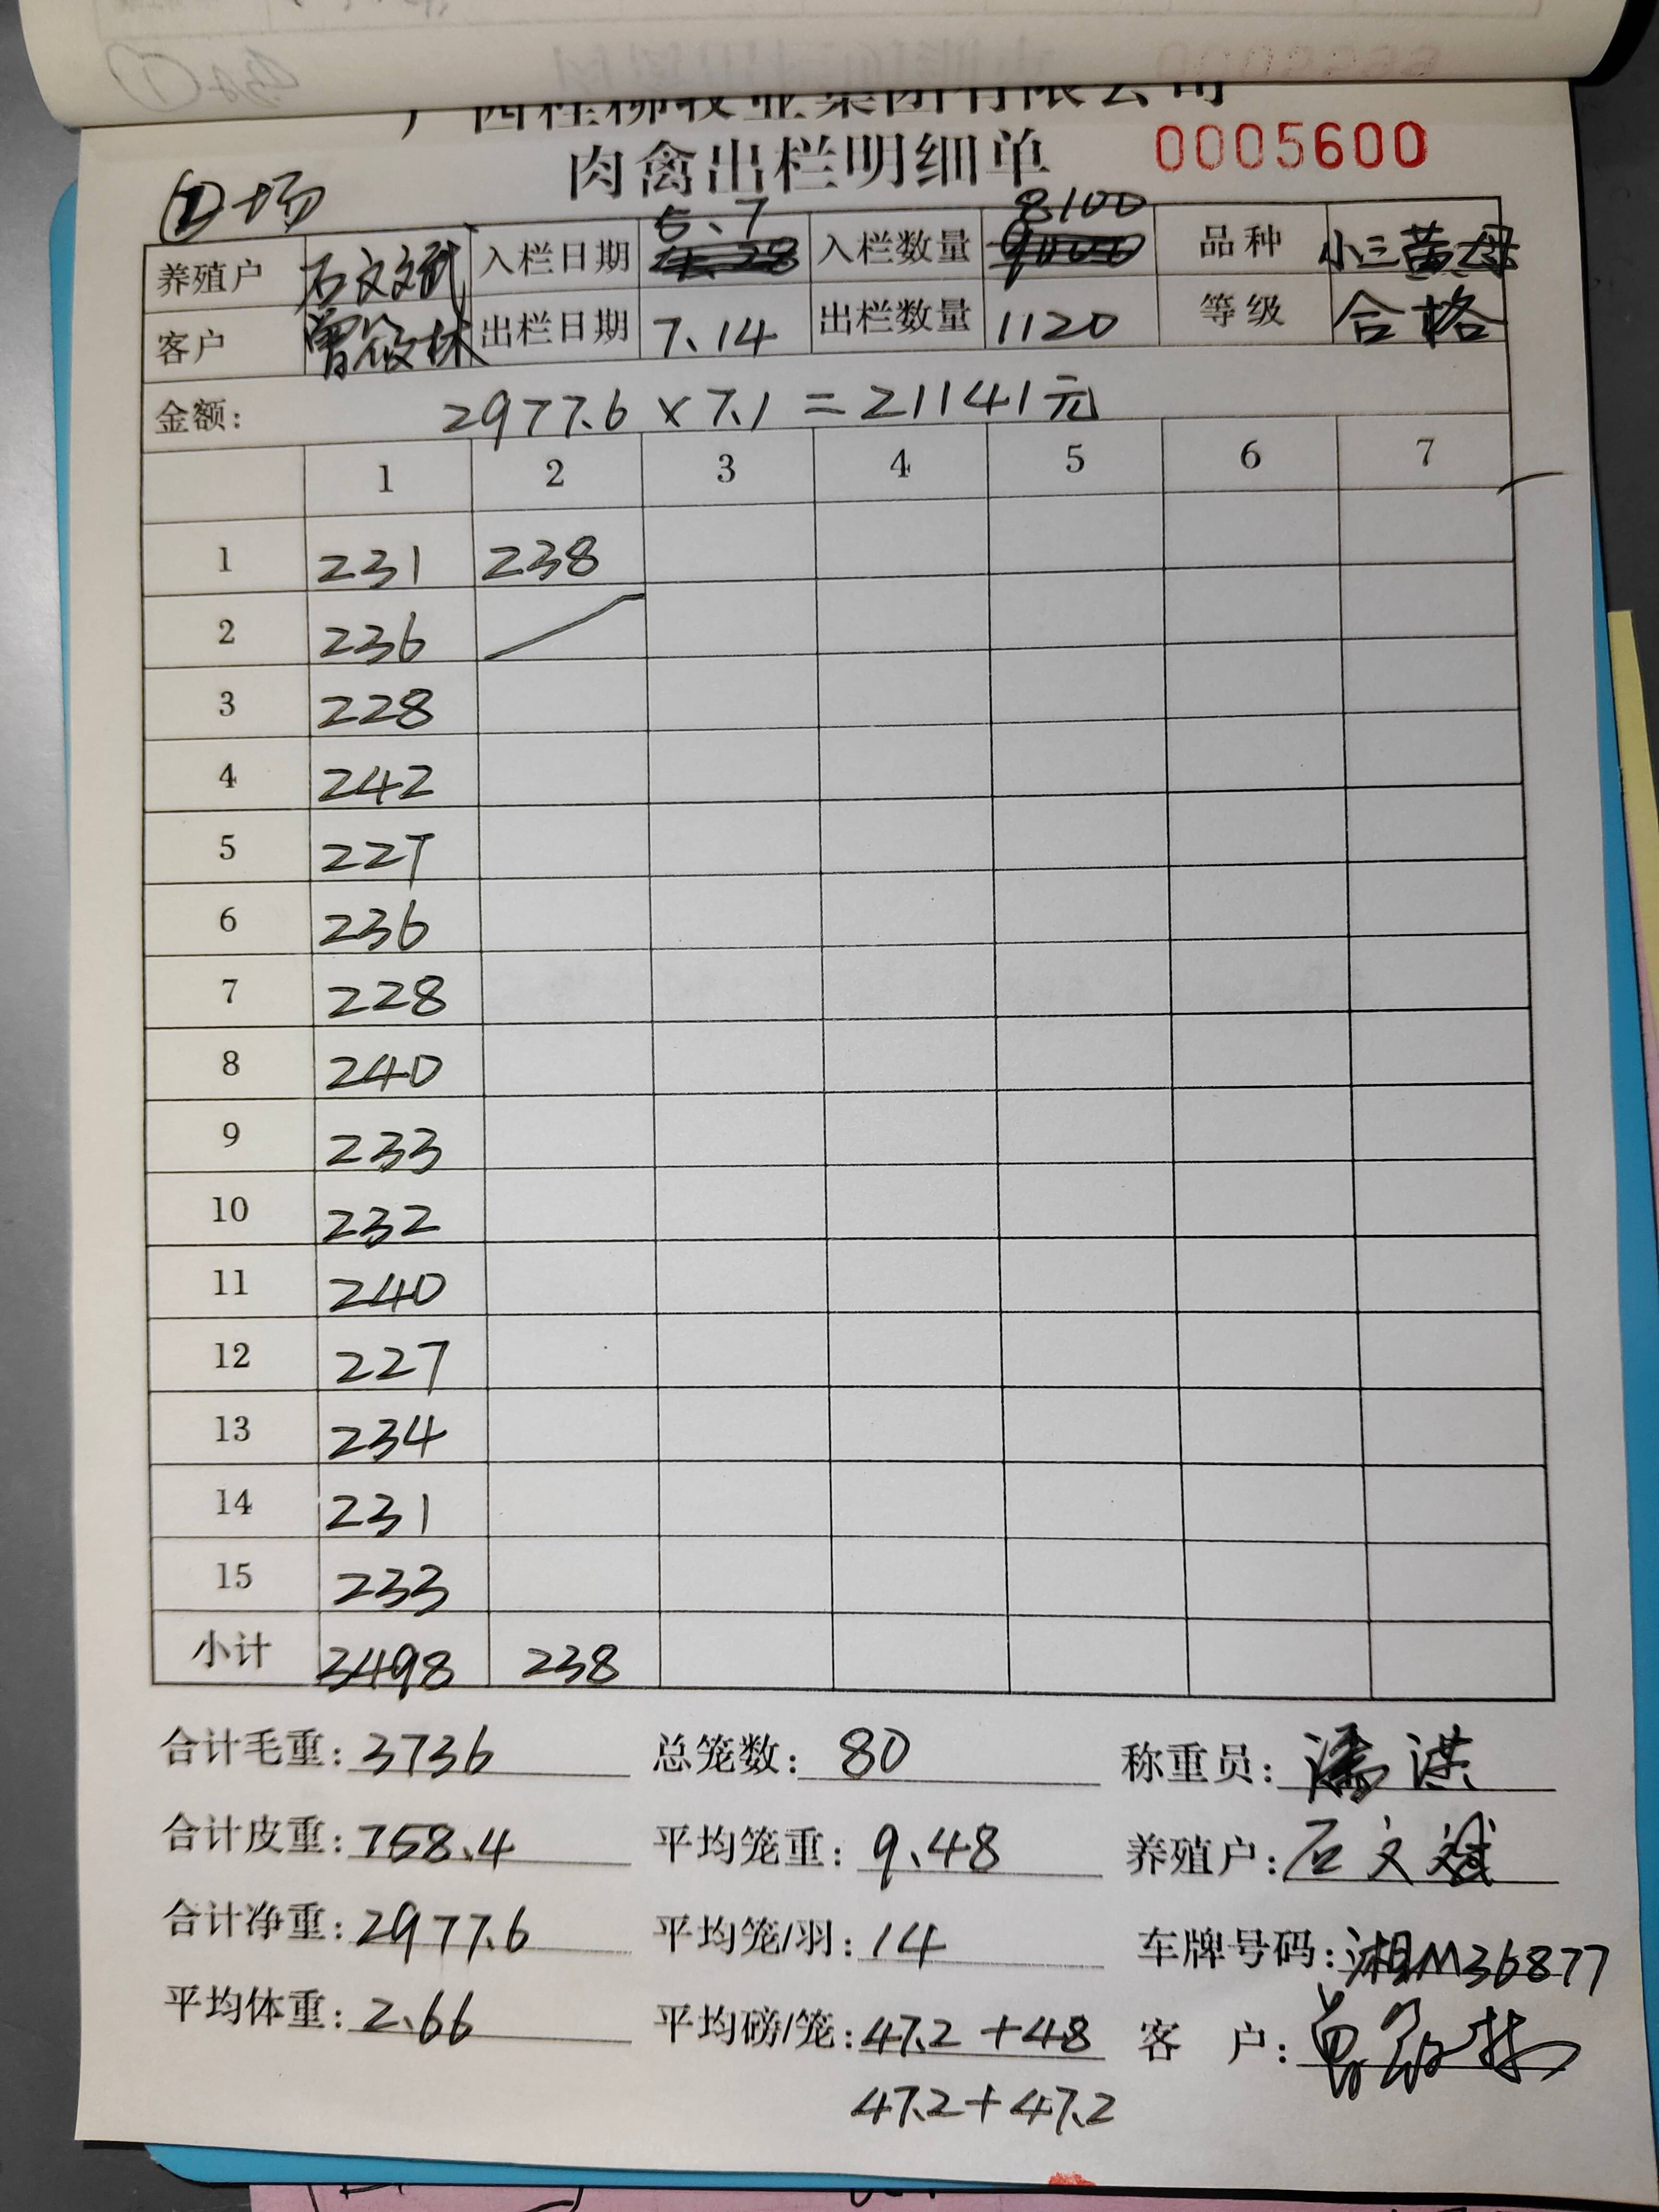 广西桂柳牧业集团有限公司
肉禽出栏明细单 0005600
②场
养殖户 石文斌 入栏日期 5、7 入栏数量 8100 品种 小三黄母
客户 出栏日期 7、14 出栏数量 1120 等级 合格
金额: 2977.6 × 7.1 = 21141元
1 2 3 4 5 6 7
1 231 238
2 236
3 228
4 242
5 227
6 236
7 228
8 240
9 233
10 232
11 240
12 227
13 234
14 231
15 233
小计 3498 238
合计毛重: 3736 总笼数: 80 称重员: 潘洪
合计皮重: 758.4 平均笼重: 9.48 养殖户: 石文斌
合计净重: 2977.6 平均笼/羽: 14 车牌号码: 湘M36877
平均体重: 2.66 平均磅/笼: 47.2 + 48 客 户:
47.2 + 47.2